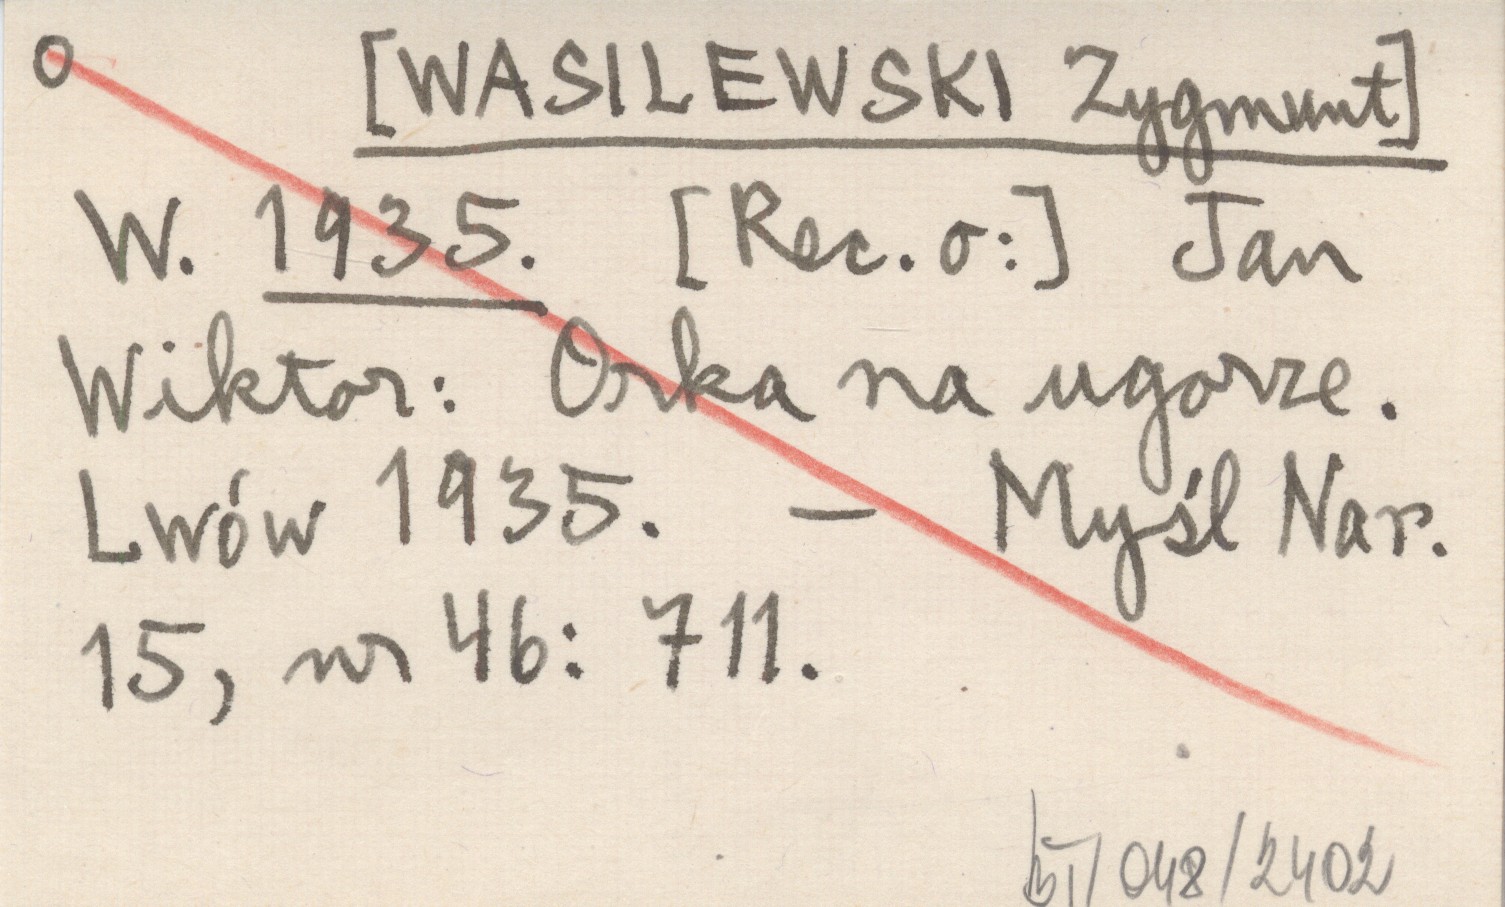 o [WASILEWSKI Zygmunt]
W. 1935. [Rec. o:] Jan
Wiktor: Orka na ugorze.
Lwów 1935. — Myśl Nar.
15, nr 46: 711.
/048/2402